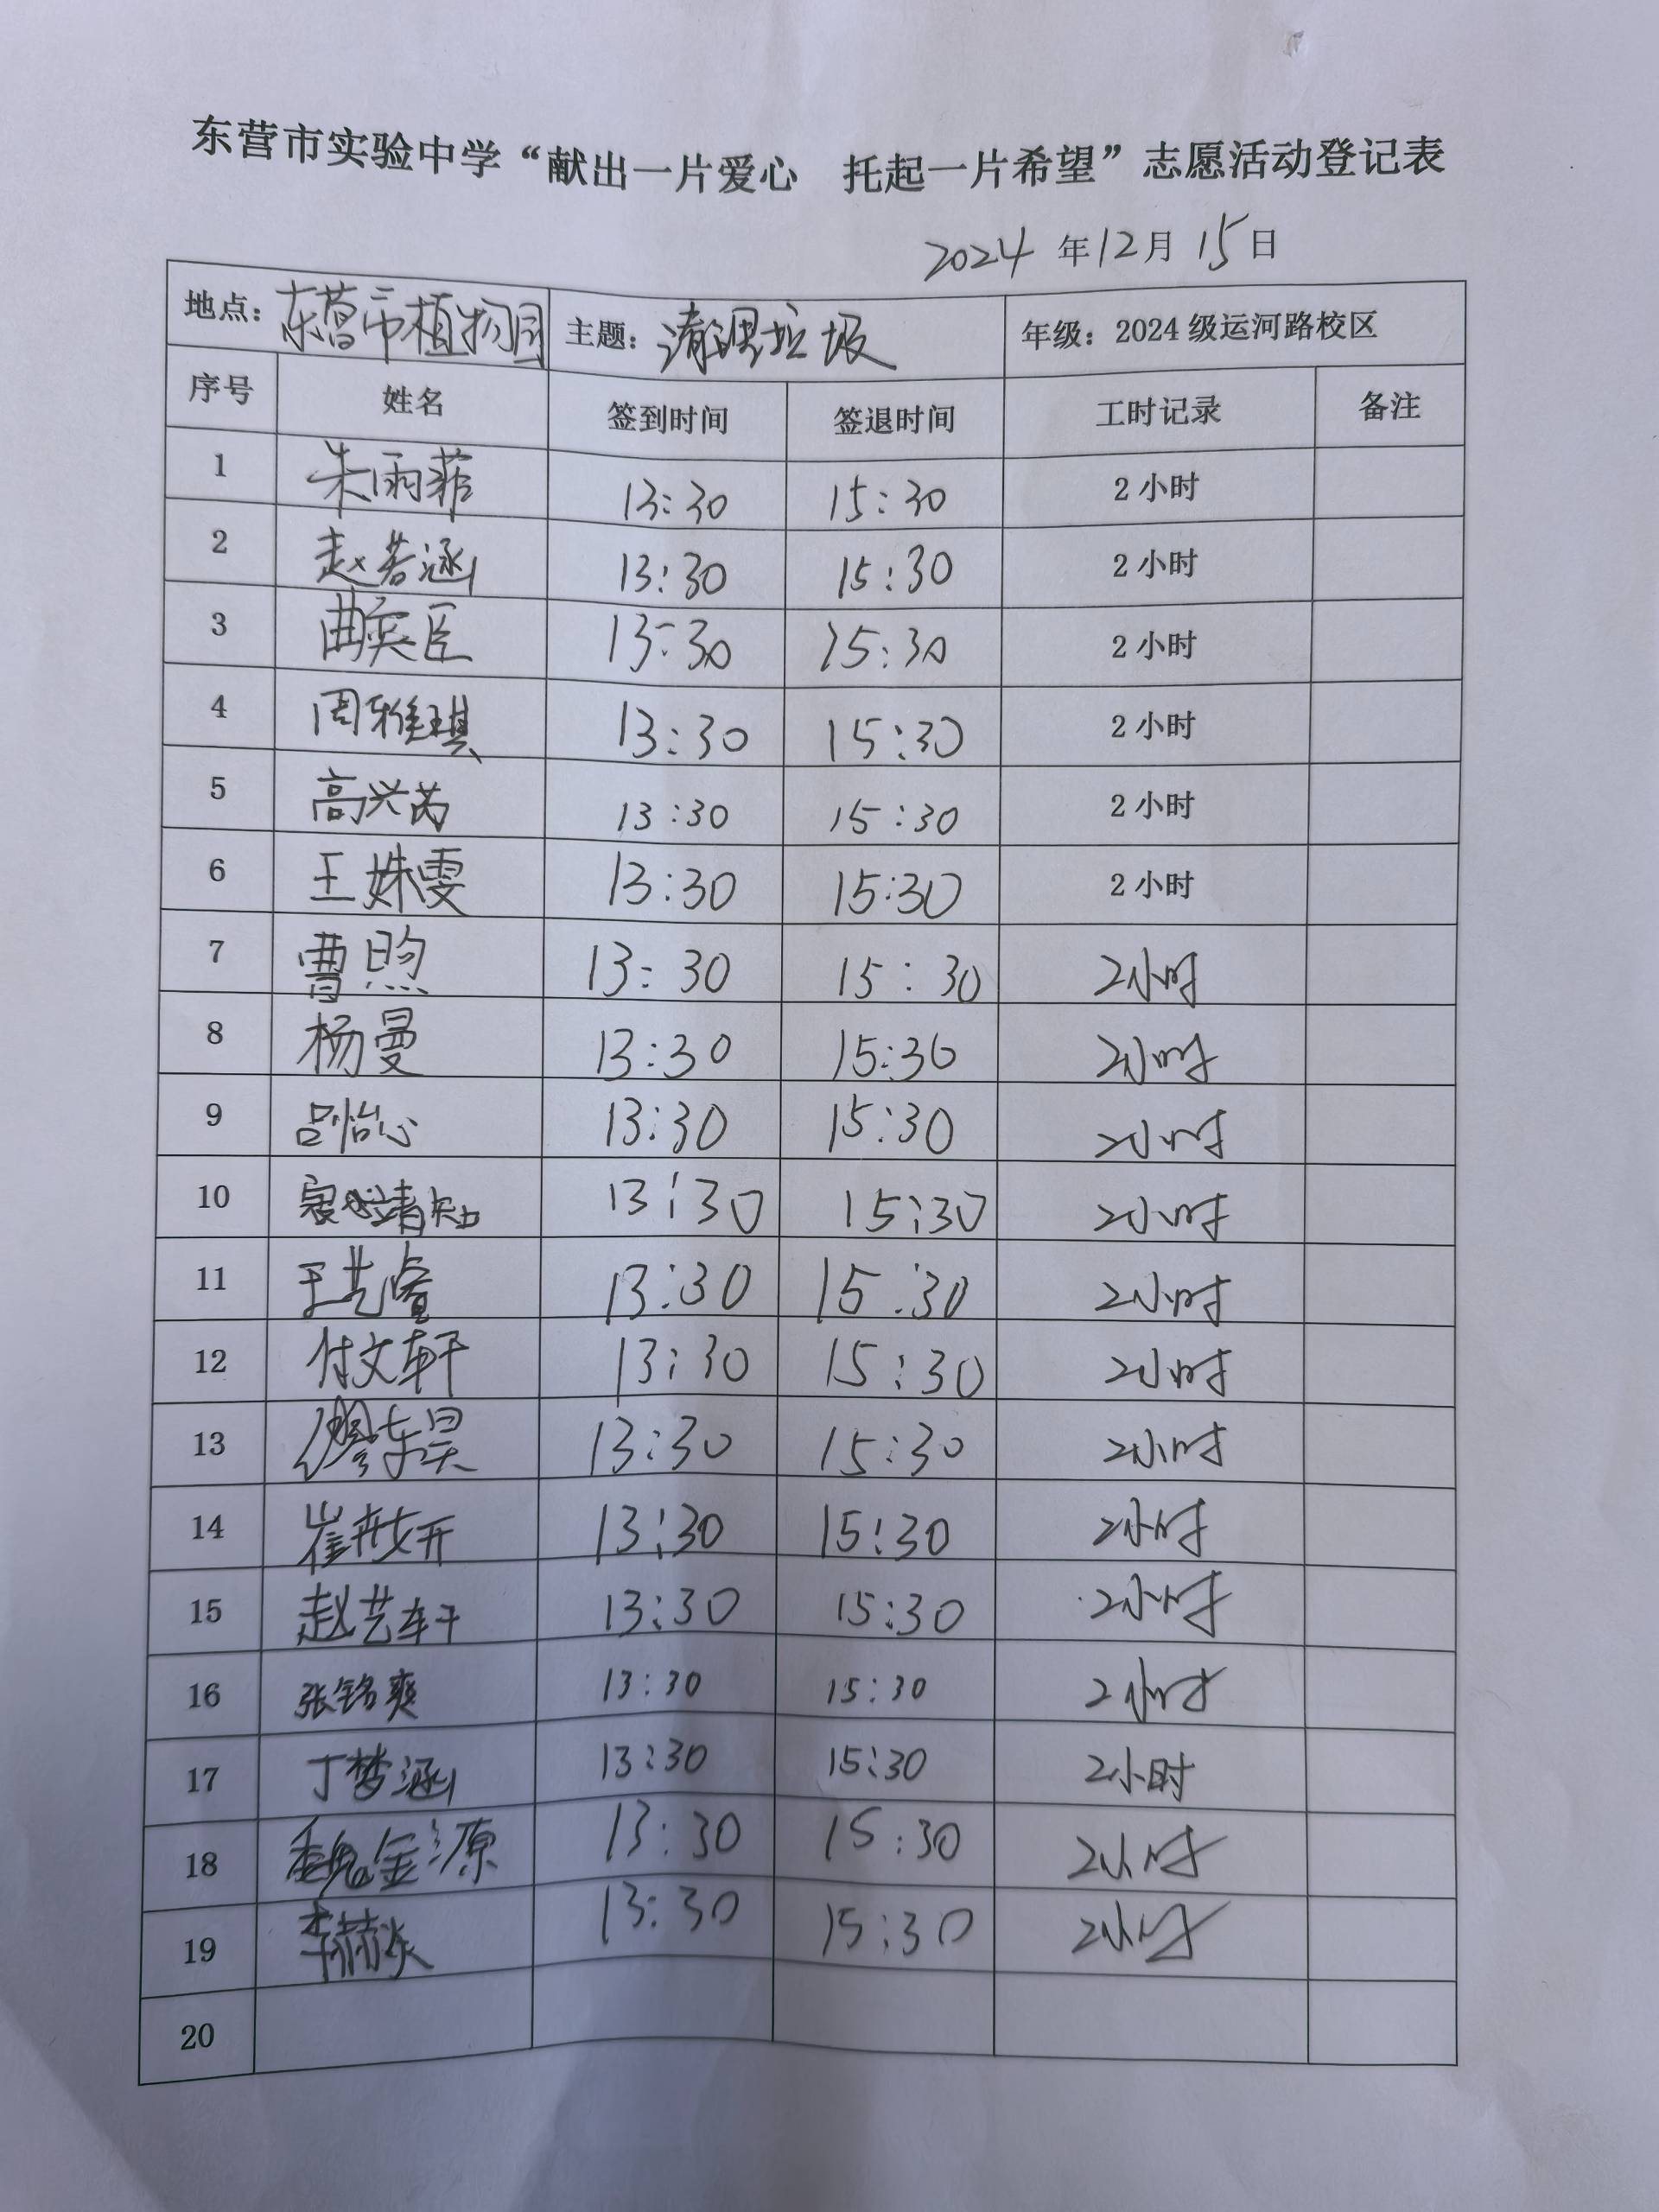 东营市实验中学“献出一片爱心　托起一片希望”志愿活动登记表
2024 年 12 月 15 日
地点：东营市植物园 主题：清理垃圾 年级：2024 级运河路校区
序号 姓名 签到时间 签退时间 工时记录 备注
1 朱雨菲 13:30 15:30 2 小时
2 赵若涵 13:30 15:30 2 小时
3 曲奕臣 13:30 15:30 2 小时
4 周雅琪 13:30 15:30 2 小时
5 高兴芮 13:30 15:30 2 小时
6 王姝雯 13:30 15:30 2 小时
7 曹煦 13:30 15:30 2小时
8 杨曼 13:30 15:30 2小时
9 吕怡心 13:30 15:30 2小时
10 13:30 15:30 2小时
11 王艺睿 13:30 15:30 2小时
12 付文轩 13:30 15:30 2小时
13 缪东昊 13:30 15:30 2小时
14 崔卉妍 13:30 15:30 2小时
15 赵艺轩 13:30 15:30 2小时
16 张铭爽 13:30 15:30 2小时
17 丁梦涵 13:30 15:30 2小时
18 魏金源 13:30 15:30 2小时
19 李赫炎 13:30 15:30 2小时
20